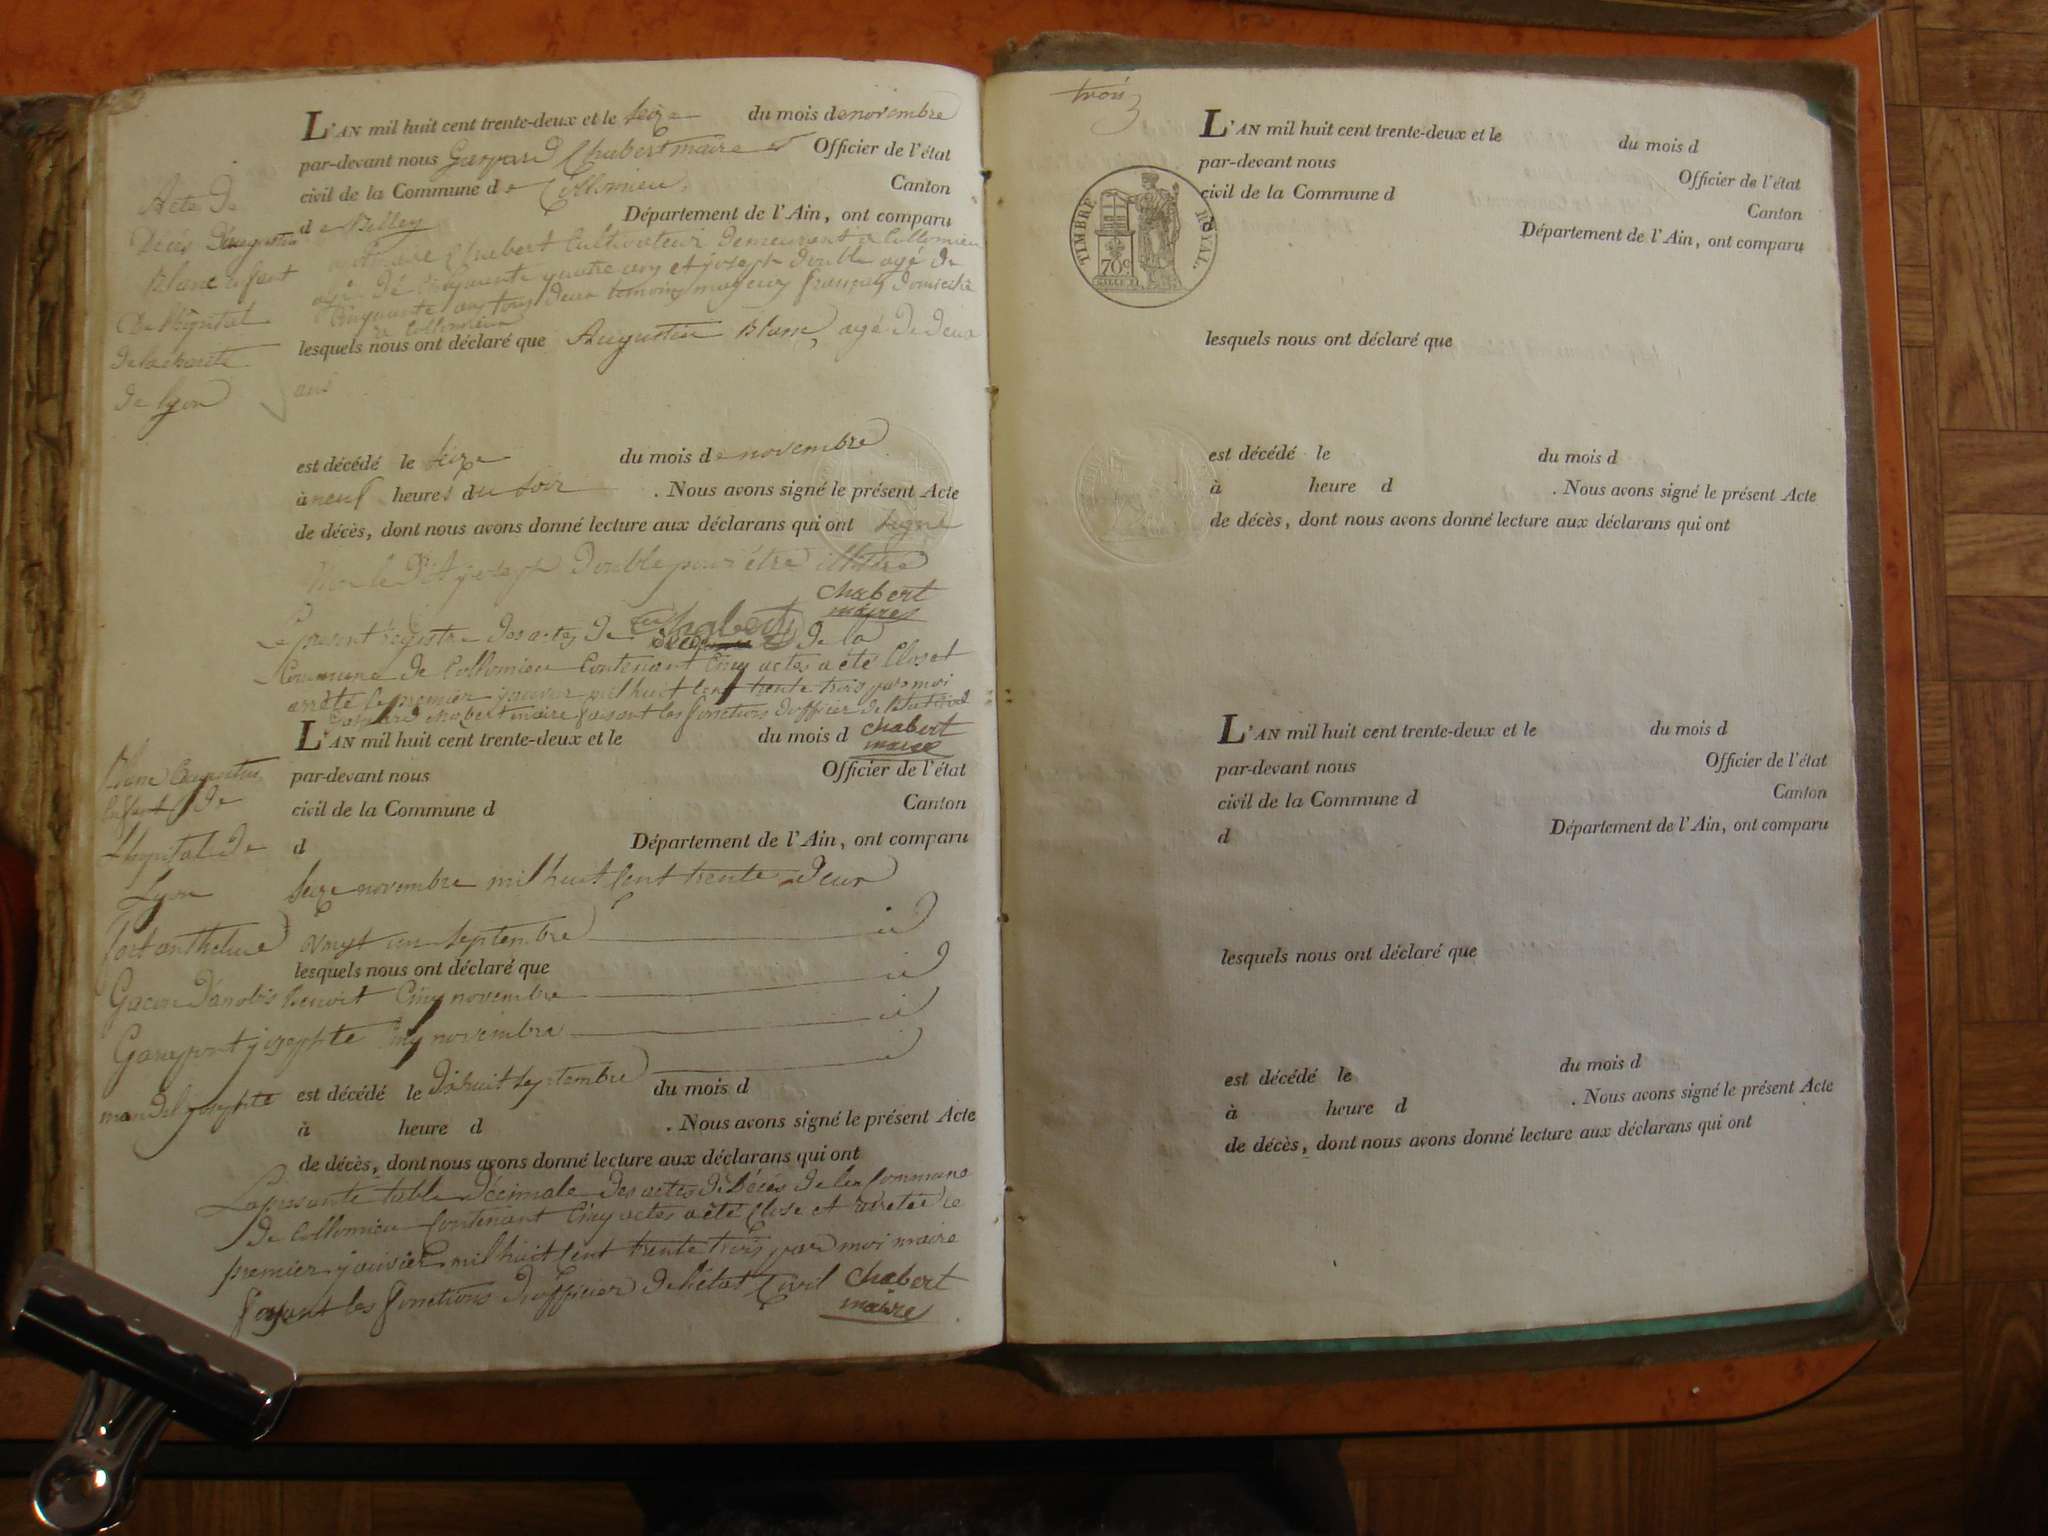 L'AN mil huit cent trente-deux et le Seize du mois de novembre
par-devant nous Gaspard Chabert maire et Officier de l'état
civil de la Commune de Collomieu Canton
de Belley Département de l'Ain, ont comparu
Chabert Cultivateur demeurant a Collomieu
agé de Cinquante quatre ans et joseph Double agé de
Cinquante ans tous deux temoins majeurs français domicilié
a Collomieu
lesquels nous ont déclaré que Augustin Blanc, agé de deux
ans
Acte de
Décès D'augustin
Blanc enfant
De l'hôpital
De la charité
De lyon
est décédé le Seize du mois de novembre
à neuf heures du Soir . Nous avons signé le présent Acte
de décès, dont nous avons donné lecture aux déclarans qui ont Signé
joseph Double pour être illitéré
chabert
maire
Chabert
Le present registre des actes de décès de la
Commune de Collomieu Contenant Cinq actes a été Clos et
arrêté le premier janvier mil huit Cent trente trois par moi
Gaspard chabert maire faisant les fonctions d'officier de l'état Civil
chabert
maire
L'AN mil huit cent trente-deux et le du mois d
par-devant nous Officier de l'état
civil de la Commune d Canton
d Département de l'Ain, ont comparu
Blanc Augustin
Enfant de
l'hopital de
Lyon Seize novembre mil huit Cent trente Deux
anthelme vingt un Septembre id
lesquels nous ont déclaré que
Benoit Cinq novembre id
josephte Cinq novembre id
josephte Dixhuit Septembre id
est décédé le du mois d
à heure d . Nous avons signé le présent Acte
de décès, dont nous avons donné lecture aux déclarans qui ont
La presante table décimale des actes de Décès de la Commune
de Collomieu Contenant Cinq actes a été Close et arretée le
premier janvier mil huit Cent trente trois par moi maire
fesant les fonctions D'officier de l'état Civil chabert
maire
trois
L'AN mil huit cent trente-deux et le du mois d
par-devant nous Officier de l'état
civil de la Commune d Canton
Département de l'Ain, ont comparu
TIMBRE ROYAL.
70c
lesquels nous ont déclaré que
est décédé le du mois d
à heure d . Nous avons signé le présent Acte
de décès, dont nous avons donné lecture aux déclarans qui ont
L'AN mil huit cent trente-deux et le du mois d
par-devant nous Officier de l'état
civil de la Commune d Canton
d Département de l'Ain, ont comparu
lesquels nous ont déclaré que
est décédé le du mois d
à heure d . Nous avons signé le présent Acte
de décès, dont nous avons donné lecture aux déclarans qui ont